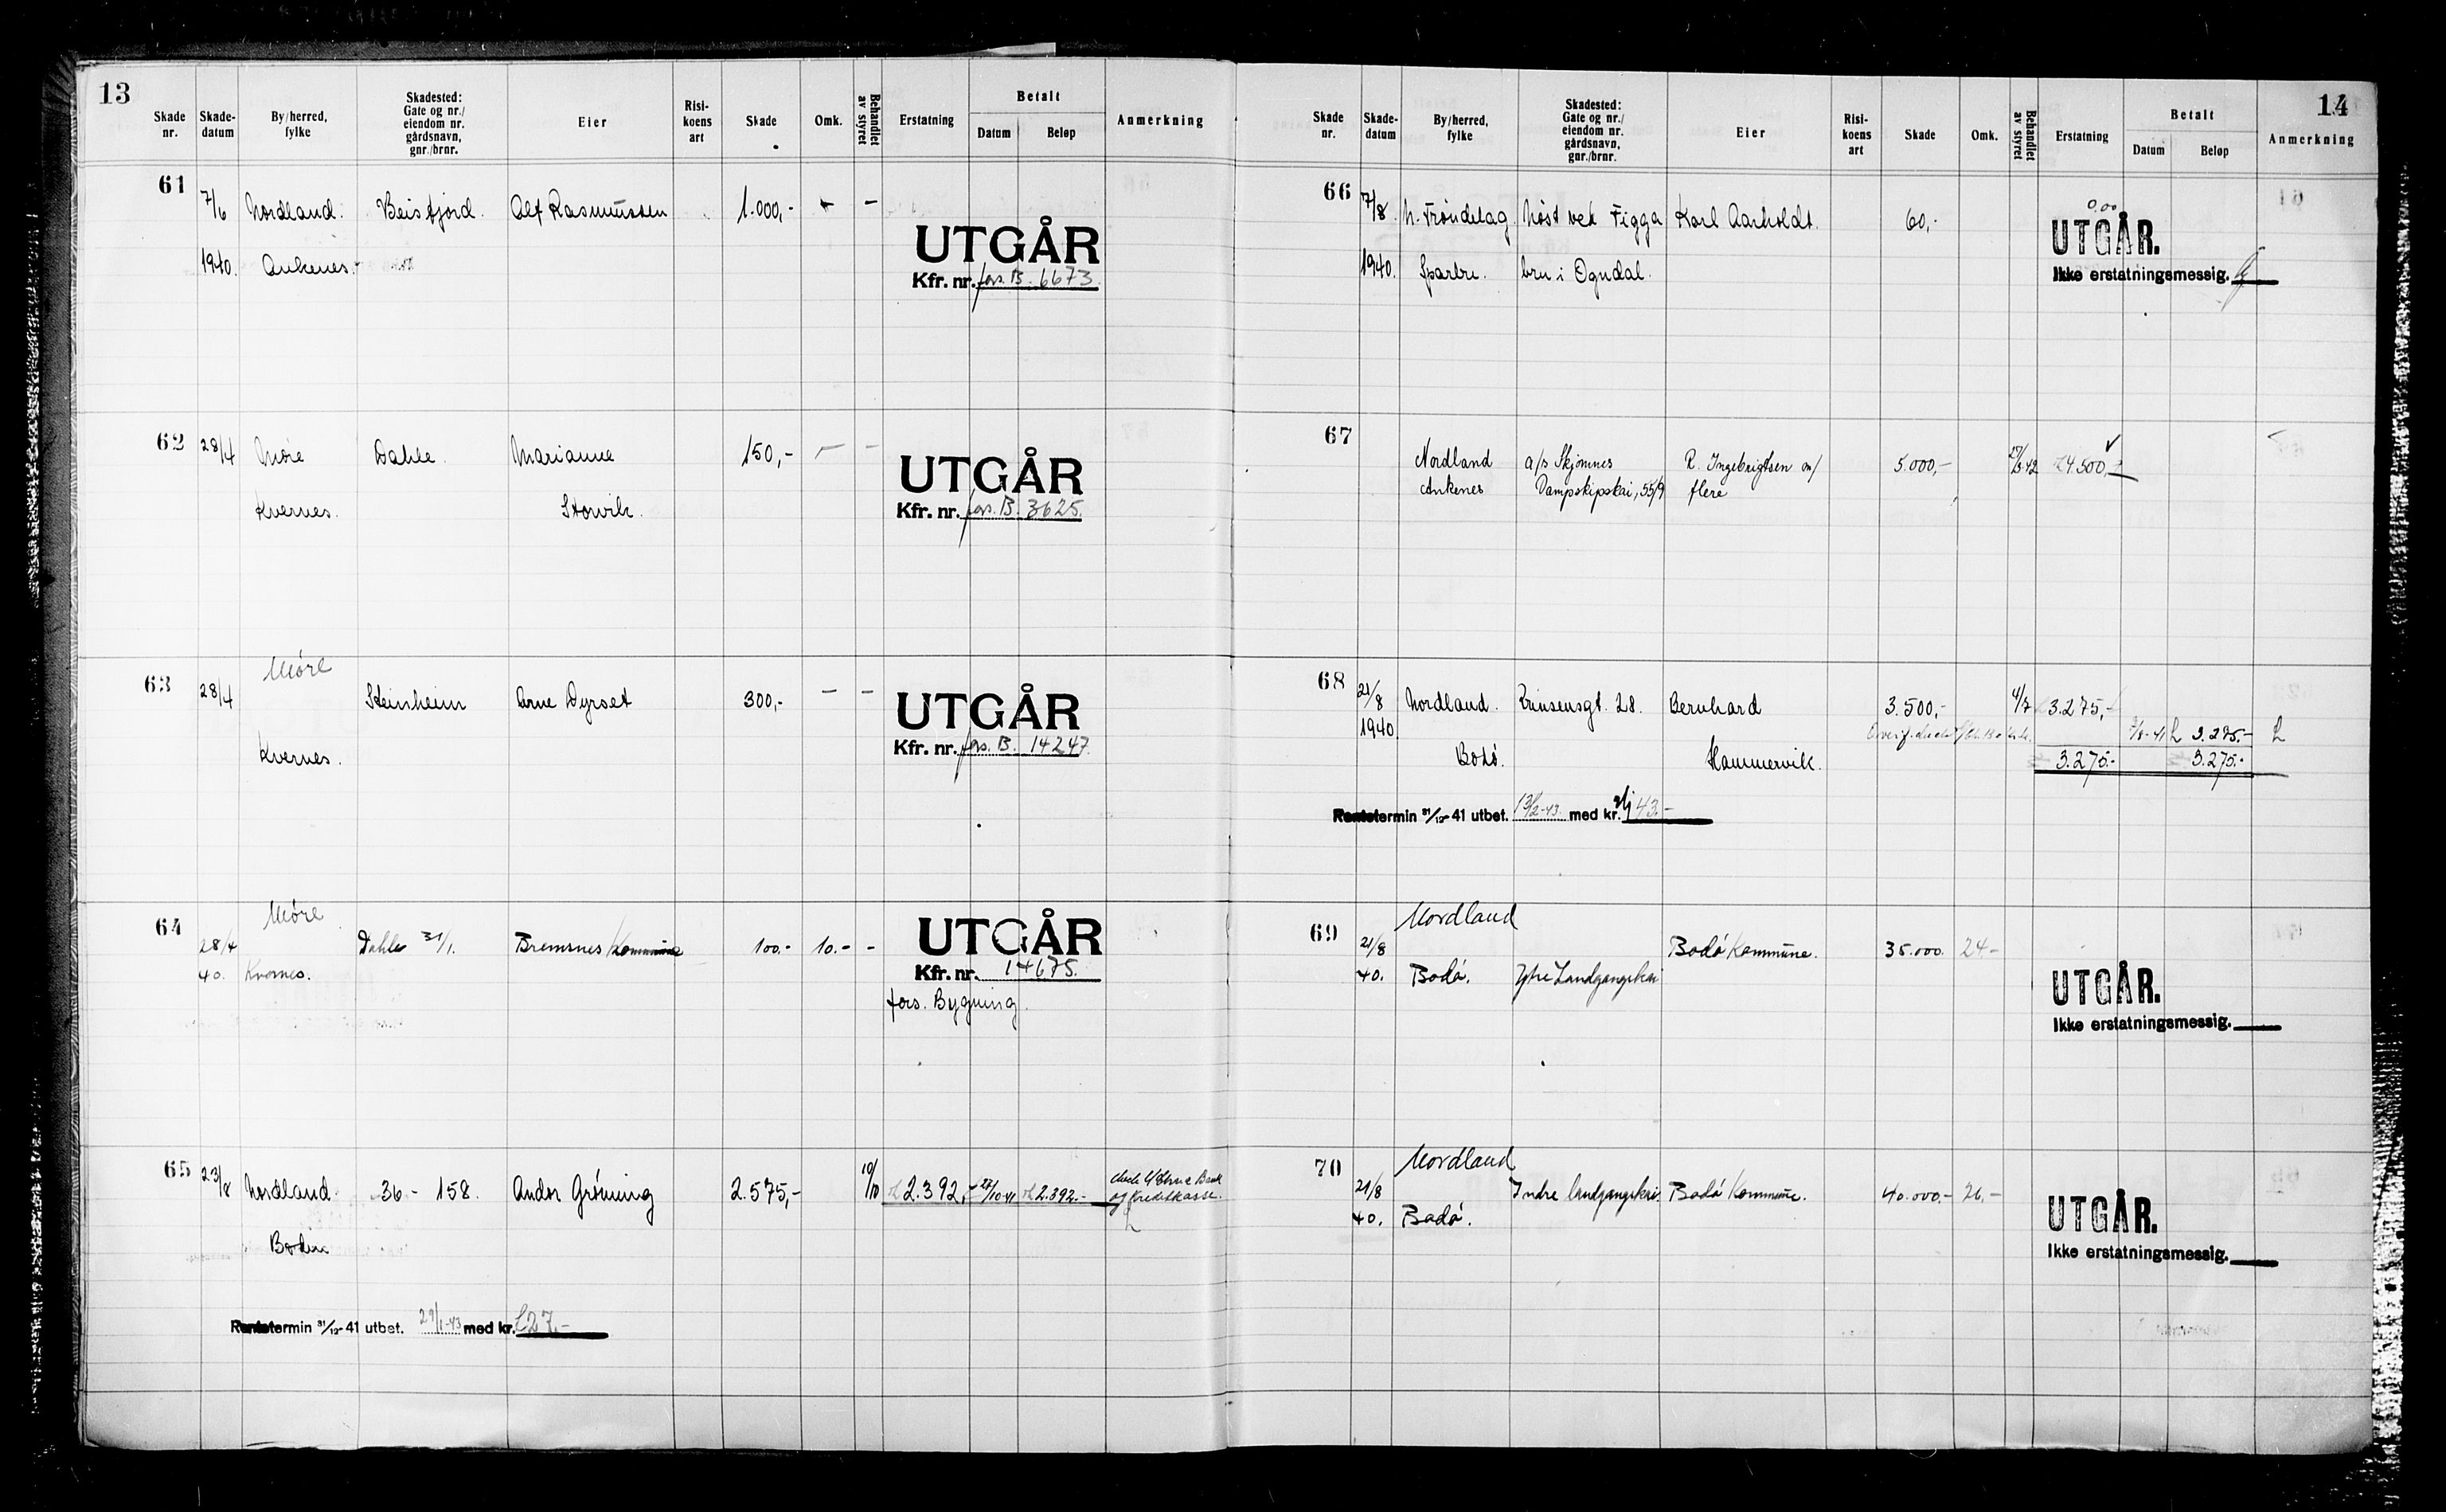 13
Skade nr. Skade-datum By/herred, fylke Skadested: Gate og nr./ eiendom nr. gårdsnavn, gnr./brnr. Eier Risi-koens art Skade Omk. Behandlet av styret Erstatning Betalt Datum Beløp Anmerkning
61 7/6 Nordland. Beisfjord. Alf Rasmussen 1.000,- - -
1940. Ankenes.
UTGÅR
Kfr. nr. fors. B. 6673.
62 28/4 Møre Dahle. Marianne 150,- - -
Kvernes. Storvik.
UTGÅR
Kfr. nr. fors. B. 3625.
Møre
63 28/4 Steinheim Arne Dyrset 300,- - -
Kvernes.
UTGÅR
Kfr. nr. fors. B. 14247.
Møre
64 28/4 Dahle 31/1. Bremsnes Kommune 100.- 10.- -
40. Kvernes.
UTGÅR
Kfr. nr. 14675.
fors. Bygning.
65 23/8 Nordland. 36 - 158. Andor Grönning 2.575,- 10/10 2.392,- 27/10-41 2.392.-
og Kreditkasse.
Boden
Rentetermin 31/12-41 utbet. 29/1-43 med kr. 127.-
14
Skade nr. Skade-datum By/herred, fylke Skadested: Gate og nr./ eiendom nr. gårdsnavn, gnr./brnr. Eier Risi-koens art Skade Omk. Behandlet av styret Erstatning Betalt Datum Beløp Anmerkning
66 7/8 N. Trøndelag Nøst ved Figga Karl Aarholdt. 60,- 0.00
1940. Sparbu. bru i Ogndal.
UTGÅR.
Ikke erstatningsmessig.
67 Nordland a/s Skjomnes R. Ingebrigtsen m/ 5.000,- 4500,-
Ankenes Dampskipskai, 55/9 flere
68 21/8 Nordland. Prinsensgt. 28. Bernhard 3.500,- 4/7 3.275,-
1940. 3.275.-
Bodø. Hammervik. 3.275.- 3.275.-
Rentetermin 31/12-41 utbet. 13/2-43. med kr. 43.-
Nordland
69 21/8 Bodø Kommune. 35.000. 24-
40. Bodø. Ytre Landgangskai
UTGÅR.
Ikke erstatningsmessig.
Nordland
70 21/8 Indre landgangskai. Bodø Kommune. 40.000.- 26,-
40. Bodø.
UTGÅR.
Ikke erstatningsmessig.